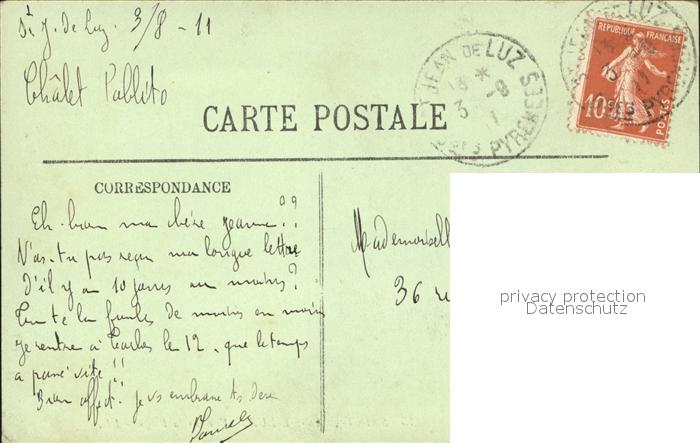 St J. de Luz 3/8 - 11
Châlet Pallito
CARTE POSTALE
ST JEAN DE LUZ
13 *
3 - 8
11
BSES PYRENEES
REPUBLIQUE FRANÇAISE
10c
POSTES
CORRESPONDANCE
Eh bien ma chère Jeanne!??
N'as-tu pas reçu ma longue lettre
d'il y a 10 jours au moins?
Tu te la foules de moins en moins
Je rentre à Tarbes le 12, que le temps
a passé vite!!
Bien affect. je vs embrasse ts deux
Mademoisell
36 rue
privacy protection
Datenschutz